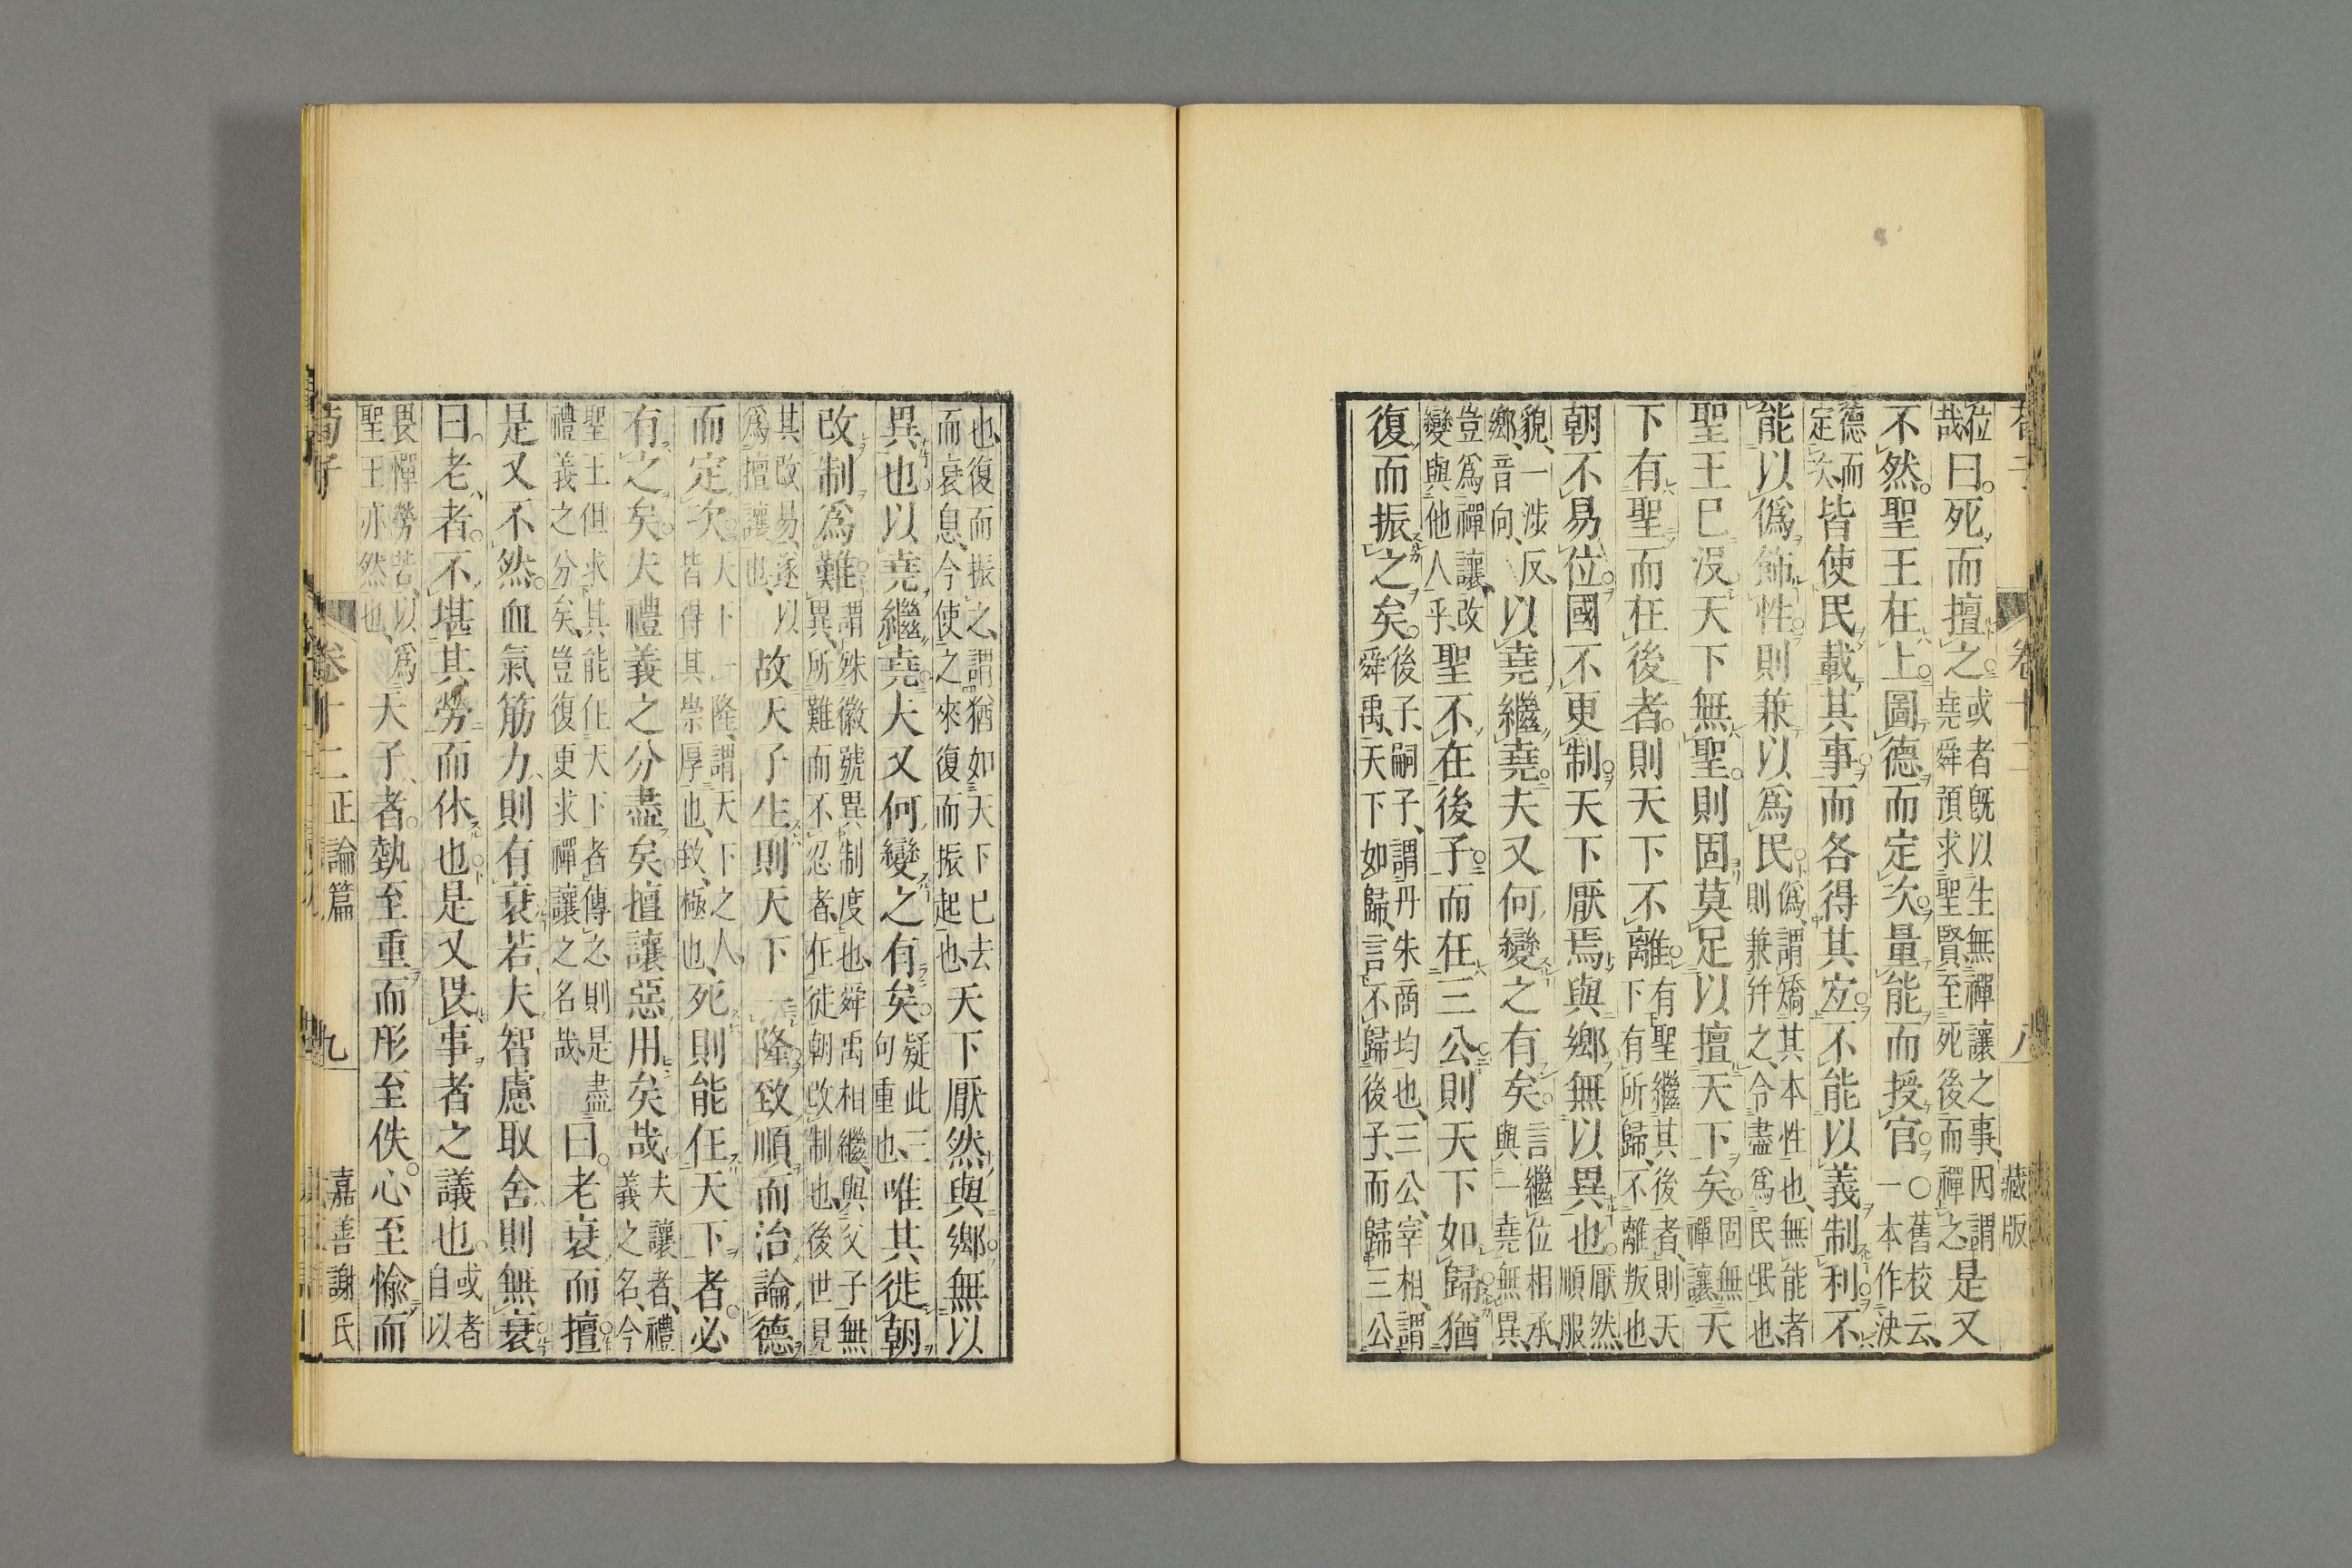 荀子 卷十二 八 藏版
位哉曰死而擅之或者既以生無禪讓之事因謂堯舜預求聖賢至死後而禪之是又
不然聖王在上圖德而定次量能而授官○舊校云一本作決
德而定次皆使民載其事而各得其宜不能以義制利不
能以僞飾性則兼以爲民僞謂矯其本性也無能者則兼幷之令盡爲民氓也
聖王已沒天下無聖則固莫足以擅天下矣固無禪讓天
下有聖而在後者則天下不離有聖繼其後者則天下有所歸不離叛也
朝不易位國不更制天下厭焉與鄉無以異也厭然順服
貌一涉反鄉音向以堯繼堯夫又何變之有矣言繼位相承與一堯無異
豈爲禪讓改變與他人乎聖不在後子而在三公則天下如歸猶
復而振之矣後子嗣子謂丹朱商均也三公宰相謂舜禹天下如歸言不歸後子而歸三公
也復而振之謂猶如天下已去而衰息今使之來復而振起也天下厭然與鄉無以
異也以堯繼堯夫又何變之有矣疑此三句重也唯其徙朝
改制爲難謂殊徽號異制度也舜禹相繼與父子無異所難而不忍者在徙朝改制也後世見
其改易遂以爲擅讓也故天子生則天下一隆致順而治論德
而定次天下一隆謂天下之人皆得其崇厚也致極也死則能任天下者必
有之矣夫禮義之分盡矣擅讓惡用矣哉夫讓者禮義之名今
聖王但求其能任天下者傳之則是盡禮義之分矣豈復更求禪讓之名哉曰老衰而擅
是又不然血氣筋力則有衰若夫智慮取舍則無衰
曰老者不堪其勞而休也是又畏事者之議也或者自以
畏憚勞苦以爲聖王亦然也天子者埶至重而形至佚心至愉而
荀子 卷十二 正論篇 九 嘉善謝氏